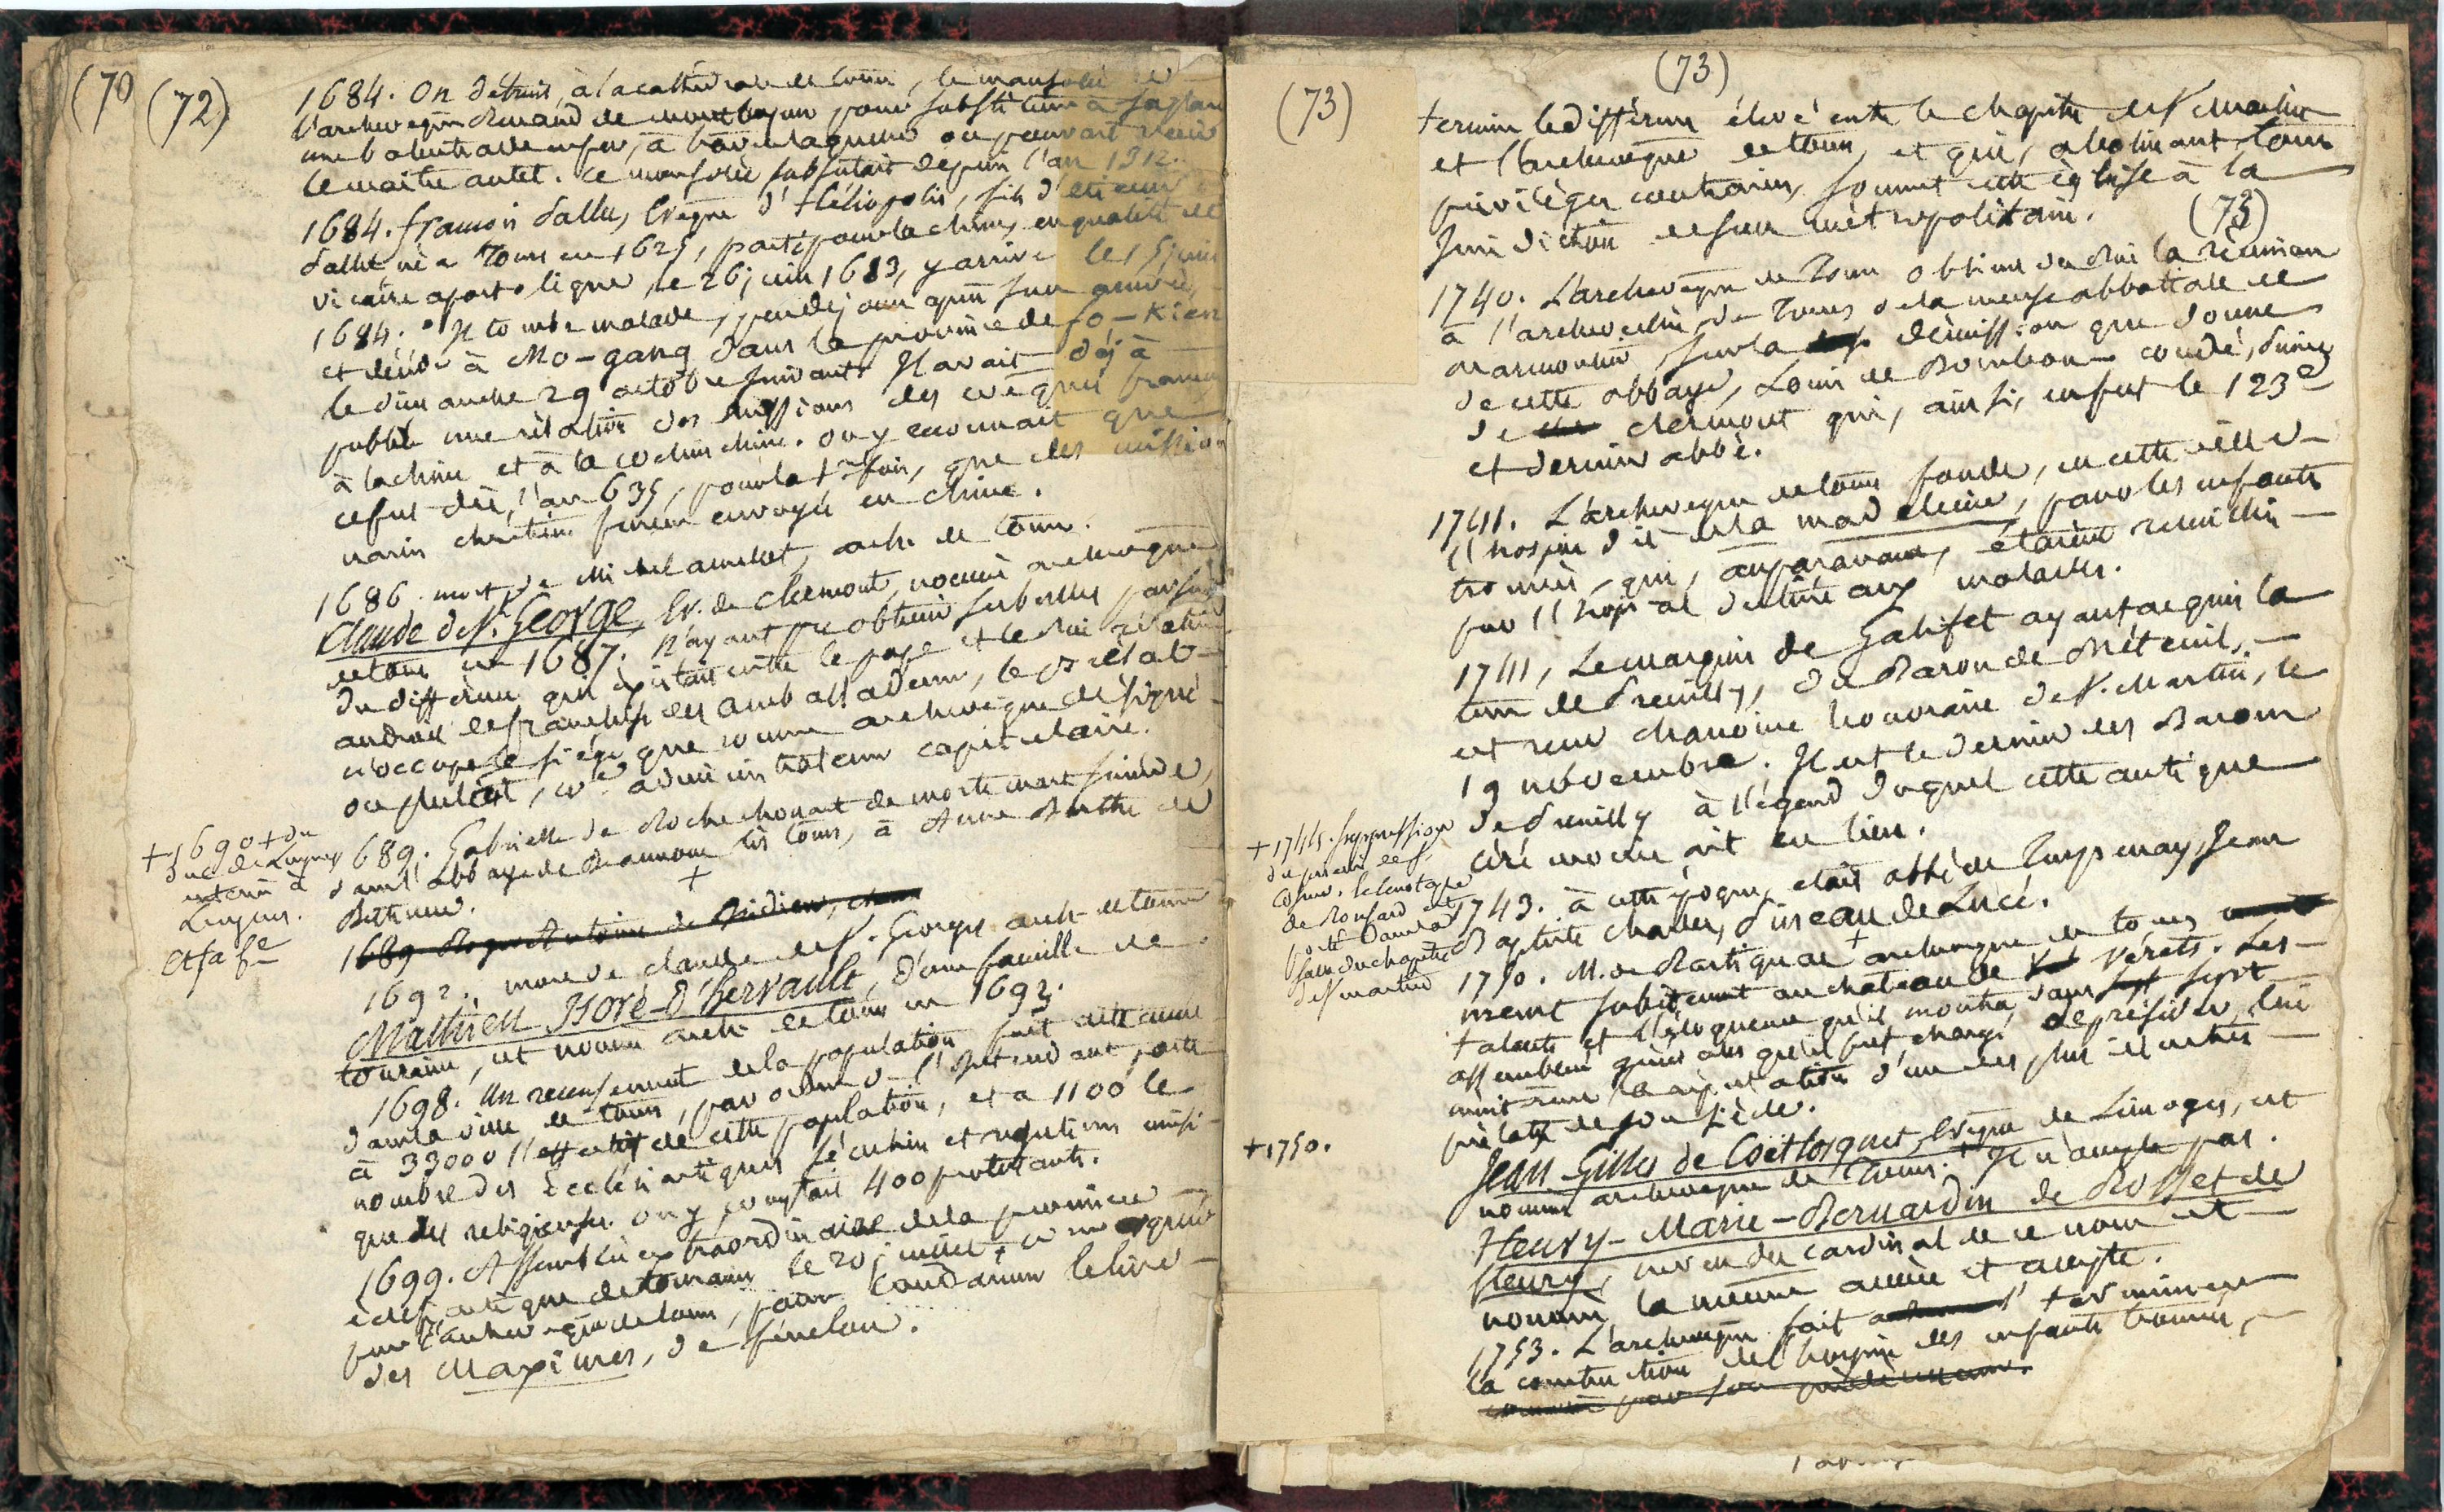 (70 (72)
1684. On détruit, à la cathédrale de tours, le mausolée de
l'archevêque Renaud de montbazon pour substituer à sa place
une balustrade en fer, à travers laquelle on pouvait voir
le maitre autel. Ce mausolée subsistait depuis l'an 1312.
1684. françois Pallu, évêque d'Héliopolis, fils d'étienne
Pallu né a Tours en 1625, parti pour la chine, en qualité de
vicaire apostolique, le 26 juin 1683, y arrive le 15 juin
1684. Il tombe malade, peu de jours après son arrivée,
et décède à Mo-yang dans la province de fo-kien
le dimanche 29 octobre suivant. Il avait déjà
publié une rélation des missions des évêques français
à la chine et à la cochinchine. on y reconnait que
ce fut dès l'an 635, pour la 1re fois, que des mission
naires chrétiens furent envoyés en chine.
1686. mort de Michel amelot, arch. de tours.
Claude de St. George, Ev. de clermont, nommé archevêque
de tours en 1687. n'ayant pu obtenir ses bulles par suite
du différent qui existait entre le pape et le Roi relativt
au droit de franchise des ambassadeurs, le prélat
n'occupe le siége que comme archevêque désigné
ou plutôt, ce administrateur capitulaire.
1689. Gabrielle de Rochechouart de mortemart succède,
dans l'abbaye de Beaumont lès tours, à Anne Berthe de
Béthune. +
+ 1690 + du
duc de Luynes
enterré à
Luynes.
et sa fe
1689 Roger Antoine de Bridieu,
1692. mort de claude de St. Georges arch. de tours
Mathieu Isoré d'hervault, d'une famille de
touraine, est nommé arch. de tours en 1693.
1698. Un recensement de la population fait cette année
dans la ville de tours, par ordre de l'Intendant, porte
à 33000 l'effectif de cette population, et a 1100 le
nombre des écclésiastiques séculiers et réguliers ainsi
que des religieuses. on y comptait 400 protestants.
1699. Assemblée extraordinaire de la province
écclésiastique de touraine le 20 juillet, convoquée
par l'archevêque de tours, pour condamner le livre
des Maximes, de fénelon.
(73) (73)
termine le différent élevé entre le chapitre de St. Martin
et l'archevêque de tours, et qui, abolissant tous
priviléges contraires, soumet cette église à la
Juridiction de son métropolitain. (73)
1740. L'archevêque de Tours obtient du Roi la réunion
à l'archevêché de Tours de la mense abbatiale de
marmoutier, sur la démission que donne
de cette abbaye, Louis de Bourbon-condé, prince
de clermont qui, ainsi, en fut le 123e
et dernier abbé.
1741. L'archevêque de tours fonde, en cette ville
l'hospice dit de la madeleine, pour les enfants
trouvés, qui, auparavant, étaient recueillis
par l'hopital destiné aux malades.
1741, Le marquis de Galifet ayant acquis la
terre de Preuilly, du Baron de Bréteuil,
est reçu chanoine honoraire de St. Martin, le
19 novembre. Il est le dernier des Barons
de Preuilly à l'égard duquel cette antique
cérémonie ait eu lieu.
+ 1744. suppression
du prieuré de St
Cosme. le cénotaphe
de Ronsard est
porté dans la
salle du chapitre
de St martin
1743. à cette époque, etait abbé de Turpenay, Jean
Baptiste charles, Puseau de Lucé.
1750. M. de Rastignac + archevêque de tours
meurt subitement au chateau de Vérets. Les
talents et l'éloquence qu'il montra dans sept
assemblées générales qu'il fut chargé de présider, lui
avait valu la réputation d'un des plus illustres
prélats de son siècle.
+ 1750.
Jean Gilles de Coëtlosquet, évêque de Limoges, est
nommé archevêque de Tours. + Il n'accepte pas.
Henry-Marie-Bernardin de Rosset de
fleury, neveu du cardinal de ce nom est
nommé la même année et accepte.
1753. L'archevêque fait terminer
la construction de l'hospice des enfants trouvés,
par son prédécesseur.